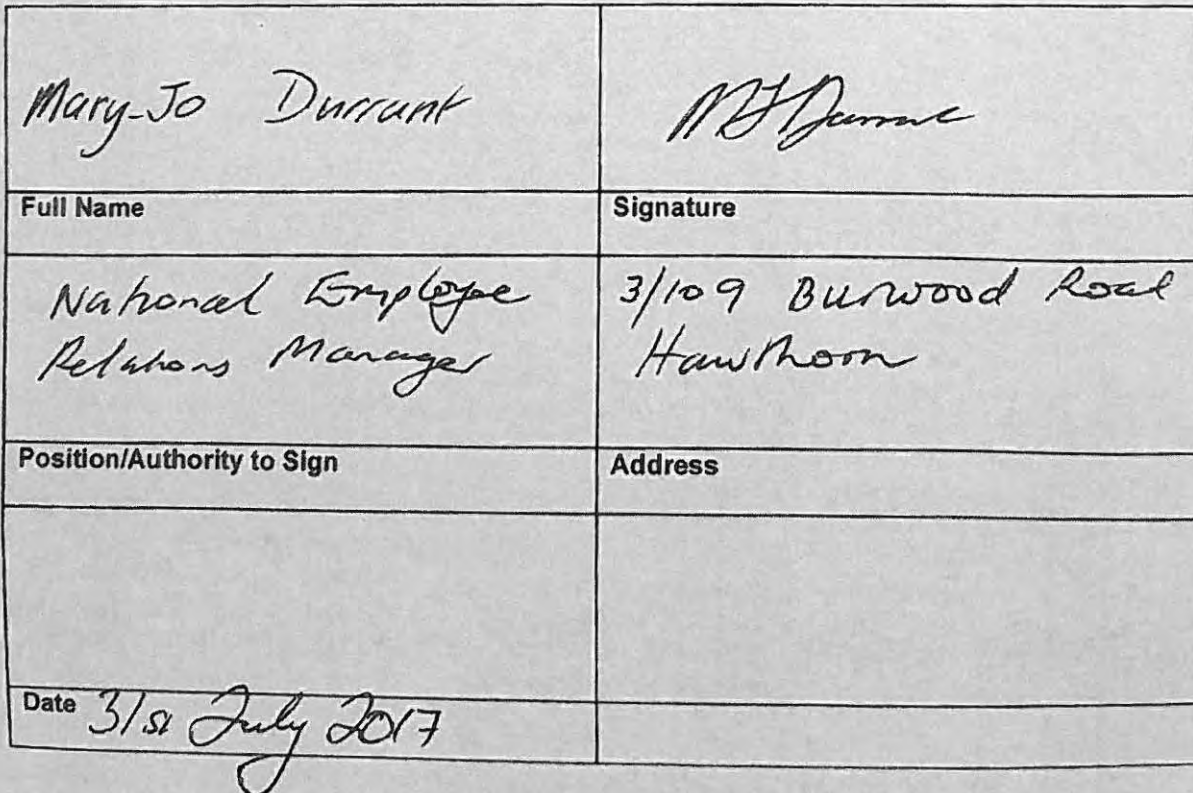 Mary-Jo Durrant
MJDurrant
Full Name
Signature
National Employee
Relations Manager
3/109 Burwood Road
Hawthorn
Position/Authority to Sign
Address
Date 31st July 2017